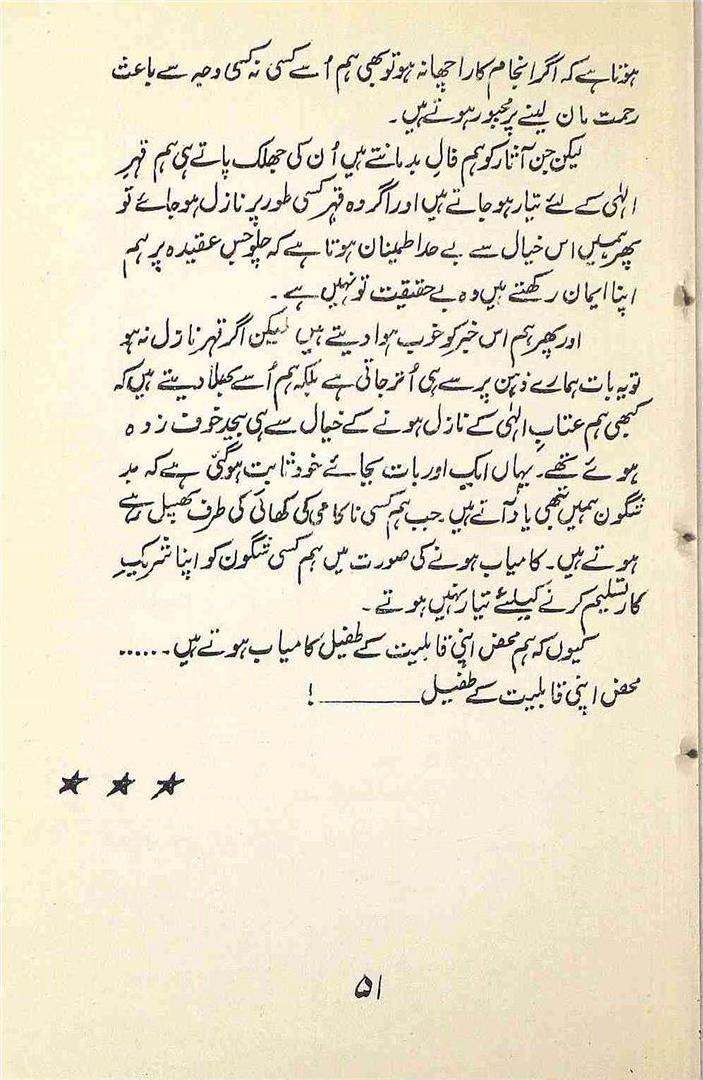 ہوتا ہے کہ اگر انجام کار اچھا نہ ہو تو بھی ہم اُسے کسی نہ کسی وجہ سے باعث
رحمت مان لینے پر مجبور ہوتے ہیں۔
لیکن جن آثار کو ہم فالِ بد مانتے ہیں اُن کی جھلک پاتے ہی ہم قہرِ
الہٰی کے لئے تیار ہو جاتے ہیں اور اگر وہ قہر کسی طور پر نازل ہو جائے تو
پھر ہمیں اس خیال سے بے حد اطمینان ہوتا ہے کہ چلو جس عقیدہ پر ہم
اپنا ایمان رکھتے ہیں وہ بے حقیقت تو نہیں ہے۔
اور پھر ہم اس خبر کو خوب ہوا دیتے ہیں لیکن اگر قہر نازل نہ ہو
تو یہ بات ہمارے ذہن پر سے ہی اُتر جاتی ہے بلکہ ہم اُسے بھلا دیتے ہیں کہ
کبھی ہم عتابِ الہٰی کے نازل ہونے کے خیال سے ہی بیحد خوف زدہ
ہوئے تھے۔ یہاں ایک اور بات بجائے خود ثابت ہو گئی ہے کہ بد
شگون ہمیں تبھی یاد آتے ہیں۔ جب ہم کسی ناکامی کی کھائی کی طرف پھسل رہے
ہوتے ہیں۔ کامیاب ہونے کی صورت میں ہم کسی شگون کو اپنا شریکِ
کار تسلیم کرنے کیلئے تیار نہیں ہوتے۔
کیوں کہ ہم محض اپنی قابلیت کے طفیل کامیاب ہوتے ہیں۔ .....
محض اپنی قابلیت کے طفیل ______ !
۵۱